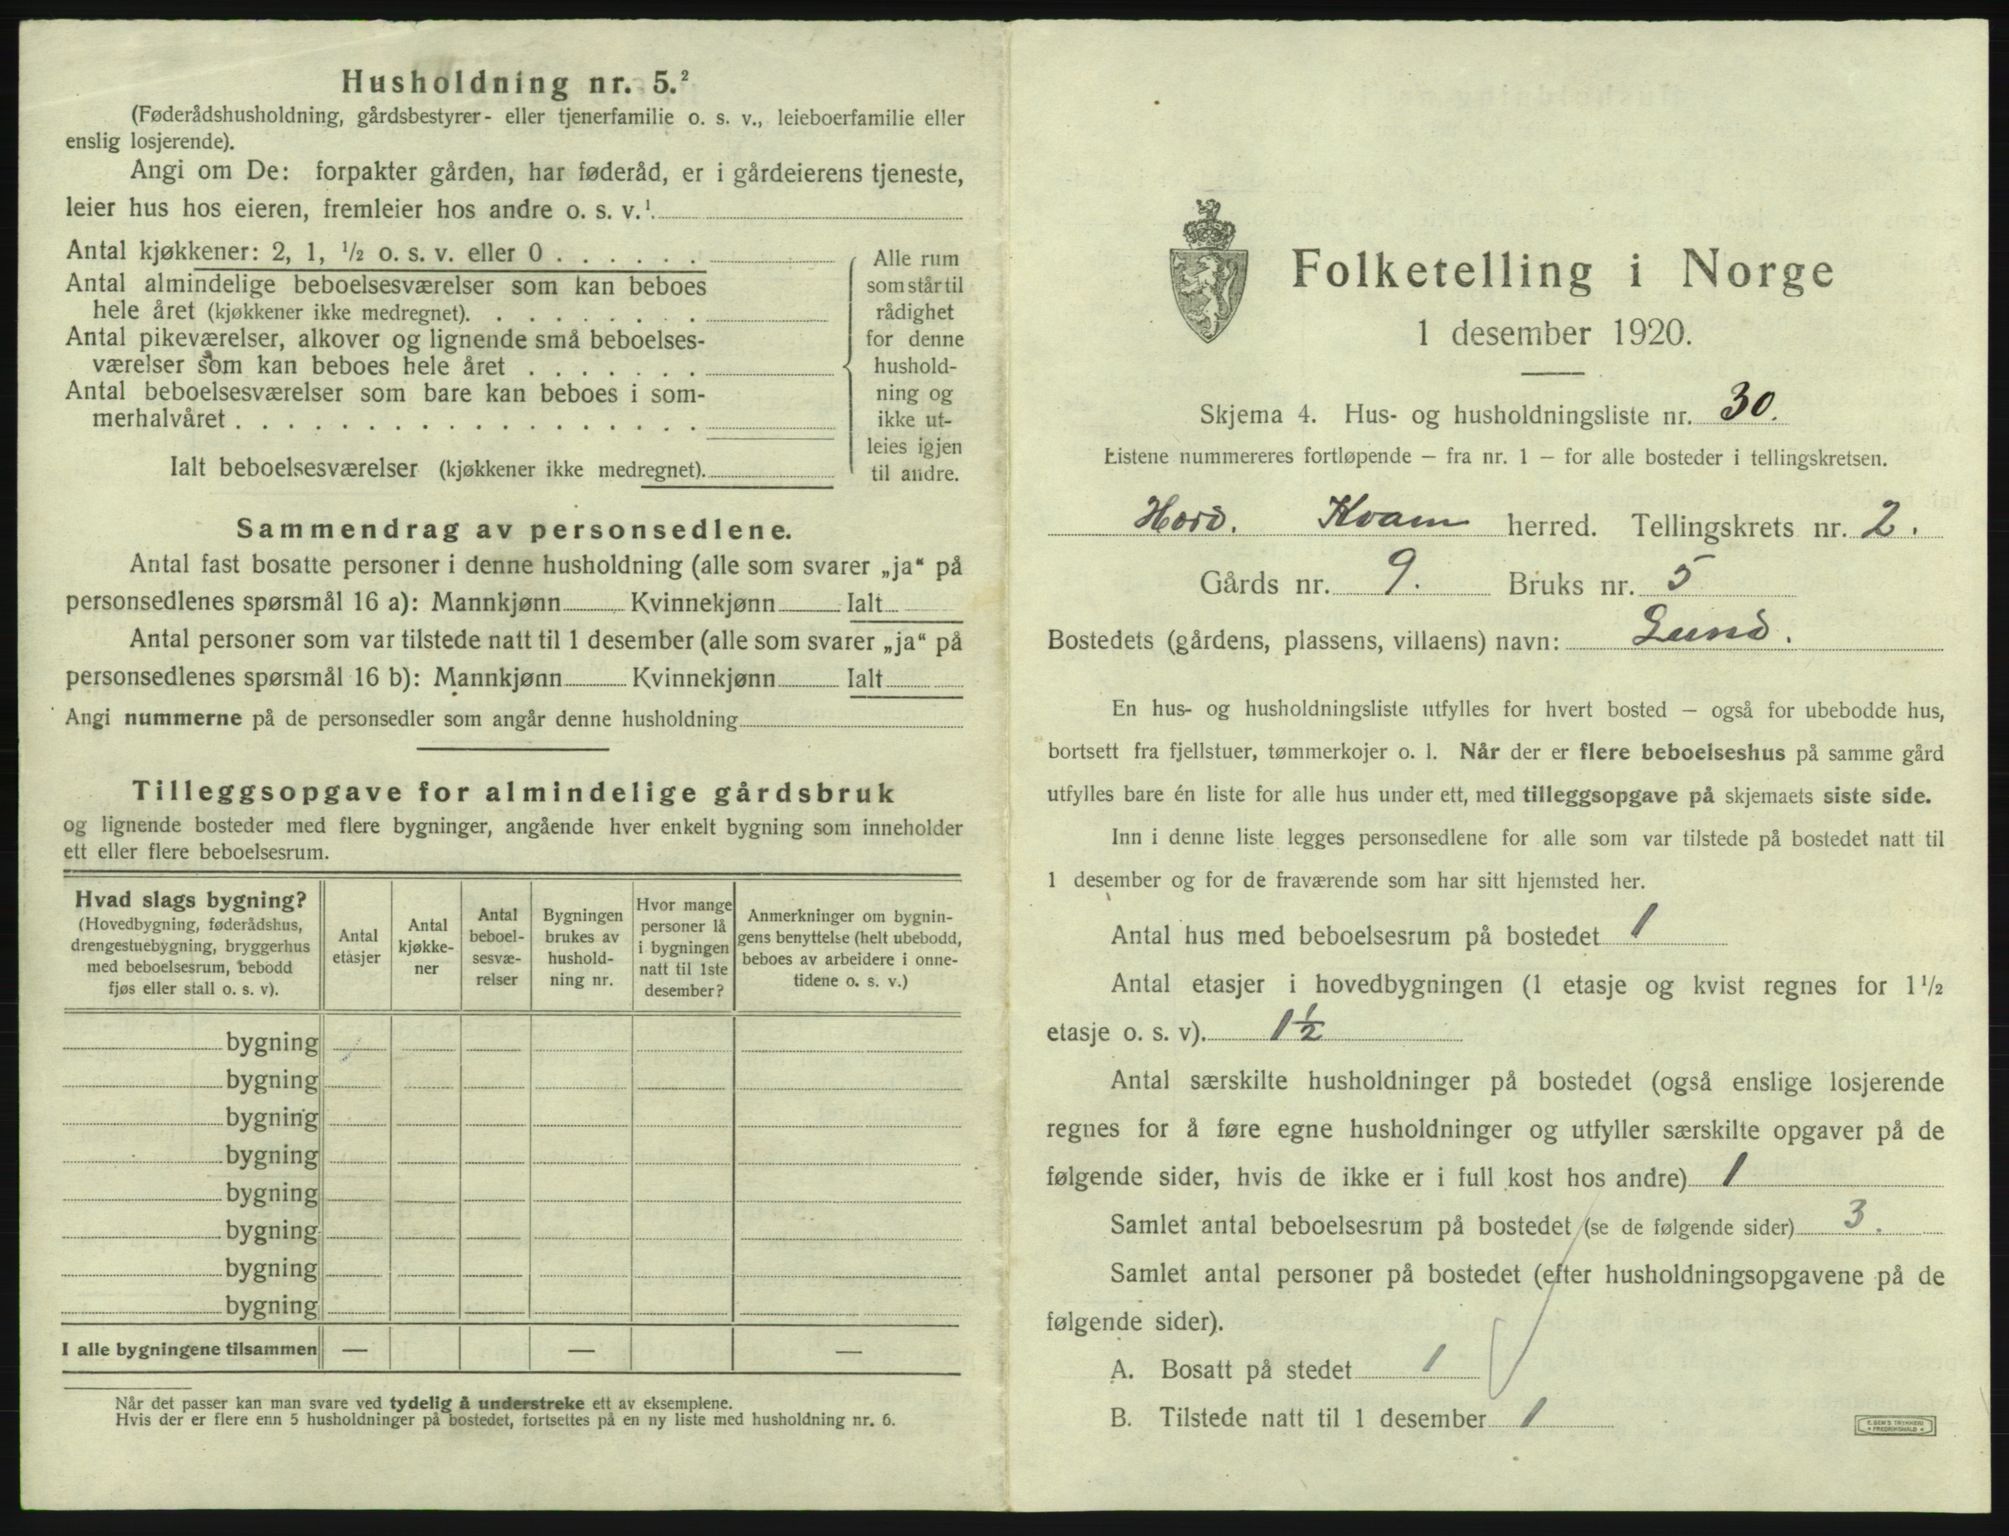 Husholdning nr. 5.²
(Føderådshusholdning, gårdsbestyrer- eller tjenerfamilie o. s. v., leieboerfamilie eller
enslig losjerende).
Angi om De: forpakter gården, har føderåd, er i gårdeierens tjeneste,
leier hus hos eieren, fremleier hos andre o. s. v.¹.
Antal kjøkkener: 2, 1, ½ o. s. v. eller 0 . . . . . .
Antal almindelige beboelsesværelser som kan beboes
hele året (kjøkkener ikke medregnet). . . . . . . . .
Antal pikeværelser, alkover og lignende små beboelses-
værelser som kan beboes hele året . . . . . . .
Antal beboelsesværelser som bare kan beboes i som-
merhalvåret . . . . . . . . . . . . . . . . . .
Ialt beboelsesværelser (kjøkkener ikke medregnet).
Alle rum
som står til
rådighet
for denne
hushold-
ning og
ikke ut-
leies igjen
til andre.
Sammendrag av personsedlene.
Antal fast bosatte personer i denne husholdning (alle som svarer „ja“ på
personsedlenes spørsmål 16 a): Mannkjønn Kvinnekjønn Ialt
Antal personer som var tilstede natt til 1 desember (alle som svarer „ja“ på
personsedlenes spørsmål 16 b): Mannkjønn Kvinnekjønn Ialt
Angi nummerne på de personsedler som angår denne husholdning
Tilleggsopgave for almindelige gårdsbruk
og lignende bosteder med flere bygninger, angående hver enkelt bygning som inneholder
ett eller flere beboelsesrum.
Hvad slags bygning?
(Hovedbygning, føderådshus,
drengestuebygning, bryggerhus
med beboelsesrum, bebodd
fjøs eller stall o. s. v).
Antal
etasjer
Antal
kjøkke-
ner
Antal
beboel-
sesvæ-
relser
Bygningen
brukes av
hushold-
ning nr.
Hvor mange
personer lå
i bygningen
natt til 1ste
desember?
Anmerkninger om bygnin-
gens benyttelse (helt ubebodd,
beboes av arbeidere i onne-
tidene o. s. v.)
bygning
bygning
bygning
bygning
bygning
bygning
bygning
bygning
I alle bygningene tilsammen — — —
Når det passer kan man svare ved tydelig å understreke ett av eksemplene.
Hvis der er flere enn 5 husholdninger på bostedet, fortsettes på en ny liste med husholdning nr. 6.
Folketelling i Norge
1 desember 1920.
Skjema 4. Hus- og husholdningsliste nr. 30.
Listene nummereres fortløpende – fra nr. 1 – for alle bosteder i tellingskretsen.
Hord. Kvam herred. Tellingskrets nr. 2.
Gårds nr. 9. Bruks nr. 5
Bostedets (gårdens, plassens, villaens) navn: Lund.
En hus- og husholdningsliste utfylles for hvert bosted – også for ubebodde hus,
bortsett fra fjellstuer, tømmerkojer o. l. Når der er flere beboelseshus på samme gård
utfylles bare én liste for alle hus under ett, med tilleggsopgave på skjemaets siste side.
Inn i denne liste legges personsedlene for alle som var tilstede på bostedet natt til
1 desember og for de fraværende som har sitt hjemsted her.
Antal hus med beboelsesrum på bostedet 1
Antal etasjer i hovedbygningen (1 etasje og kvist regnes for 1½
etasje o. s. v). 1½
Antal særskilte husholdninger på bostedet (også enslige losjerende
regnes for å føre egne husholdninger og utfyller særskilte opgaver på de
følgende sider, hvis de ikke er i full kost hos andre) 1
Samlet antal beboelsesrum på bostedet (se de følgende sider) 3.
Samlet antal personer på bostedet (efter husholdningsopgavene på de
følgende sider).
A. Bosatt på stedet 1
B. Tilstede natt til 1 desember 1
E. SEM'S TRYKKERI
FREDRIKSHALD